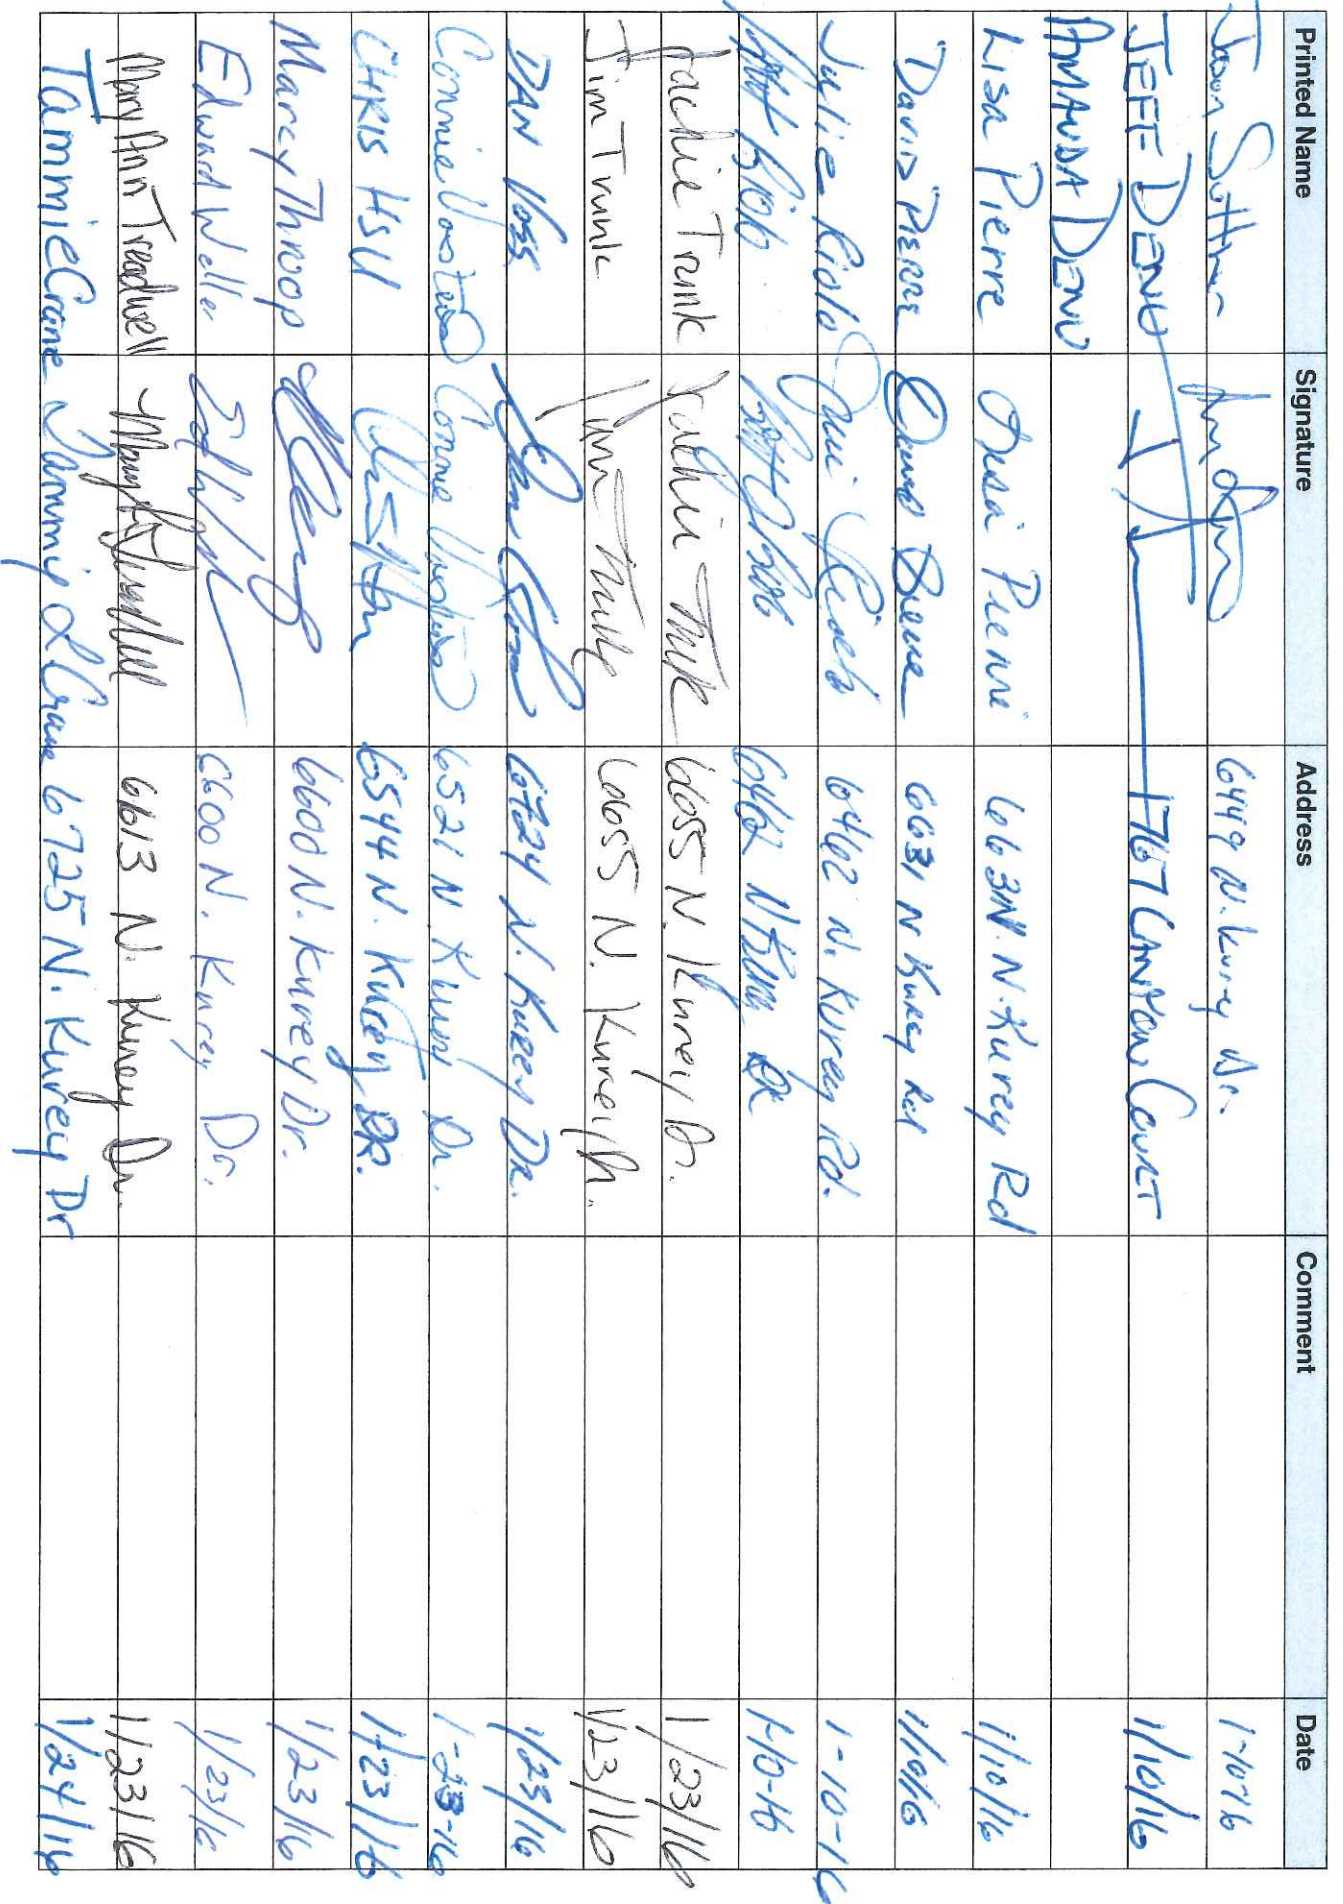 Printed Name Signature Address Comment Date
Jason 6449 N. Kurey Dr. 1-10-16
JEFF DENU 1767 CANYON COURT 1/10/16
AMANDA DENU
Lisa Pierre Lisa Pierre 6631 N. Kurey Rd 1/10/16
DAVID PIERRE David Pierre 6631 N Kurey Rd 1/10/16
Julie Riolo 6462 N. Kurey Rd. 1-10-16
6462 N DR 1-10-16
Jackie Trunk Jackie Trunk 6655 N. Kurey Dr. 1/23/16
Jim Trunk Jim Trunk 6655 N. Kurey Dr. 1/23/16
DAN VOSS Dan Voss 6724 N. KUREY DR. 1/23/16
Connie Connie 6521 N Kurey Dr. 1-23-16
CHRIS HSU 6544 N. Kurey DR. 1/23/16
Marcy Throop 6600 N. Kurey Dr. 1/23/16
Edward Weller 6600 N. Kurey Dr. 1/23/16
Mary Ann Treadwell 6613 N. Kurey Dr. 1/23/16
Tammie Crane Tammie L Crane 6725 N. Kurey Dr 1/24/16